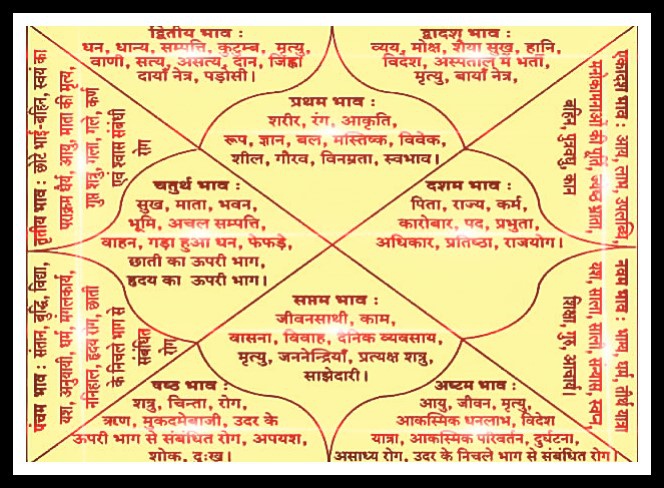 द्वितीय भाव :
धन, धान्य, सम्पत्ति, कुटुम्ब, मृत्यु,
वाणी, सत्य, असत्य, दान, जिह्वा
दायाँ नेत्र, पड़ोसी।
द्वादश भाव :
व्यय, मोक्ष, शैया सुख, हानि,
विदेश, अस्पताल में भर्ती,
मृत्यु, बायाँ नेत्र,
प्रथम भाव :
शरीर, रंग, आकृति,
रूप, ज्ञान, बल, मस्तिष्क, विवेक,
शील, गौरव, विनम्रता, स्वभाव।
तृतीय भाव : छोटे भाई-बहिन, स्वयं का
पराक्रम धैर्य, आयु, माता की मृत्यु,
गुप्त शत्रु, गला, गले, कर्ण
एवं श्वास संबंधी
रोग
एकादश भाव : आय, लाभ, उपलब्धि,
मनोकामनाओं की पूर्ति, ज्येष्ठ भ्राता,
बहिन, पुत्रवधु, कान
चतुर्थ भाव :
सुख, माता, भवन,
भूमि, अचल सम्पत्ति,
वाहन, गड़ा हुआ धन, फेफड़े,
छाती का ऊपरी भाग,
हृदय का ऊपरी भाग।
दशम भाव :
पिता, राज्य, कर्म,
कारोबार, पद, प्रभुता,
अधिकार, प्रतिष्ठा, राजयोग।
सप्तम भाव :
जीवनसाथी, काम,
वासना, विवाह, दैनिक व्यवसाय,
मृत्यु, जननेन्द्रियाँ, प्रत्यक्ष शत्रु,
साझेदारी।
पंचम भाव : संतान, बुद्धि, विद्या,
यश, अनुयायी, धर्म, मंगलकार्य,
ननिहाल, हृदय रोग, छाती
के निचले भाग से
संबंधित
रोग,
नवम भाव : भाग्य, धर्म, तीर्थ यात्रा
यश, साला, साली, सन्यास, स्वप्न,
शिक्षा, गुरु, आचार्य।
षष्ठ भाव :
शत्रु, चिन्ता, रोग,
ऋण, मुकदमेबाजी, उदर के
ऊपरी भाग से संबंधित रोग, अपयश,
शोक, दुःख।
अष्टम भाव :
आयु, जीवन, मृत्यु,
आकस्मिक धनलाभ, विदेश
यात्रा, आकस्मिक परिवर्तन, दुर्घटना,
असाध्य रोग, उदर के निचले भाग से संबंधित रोग।